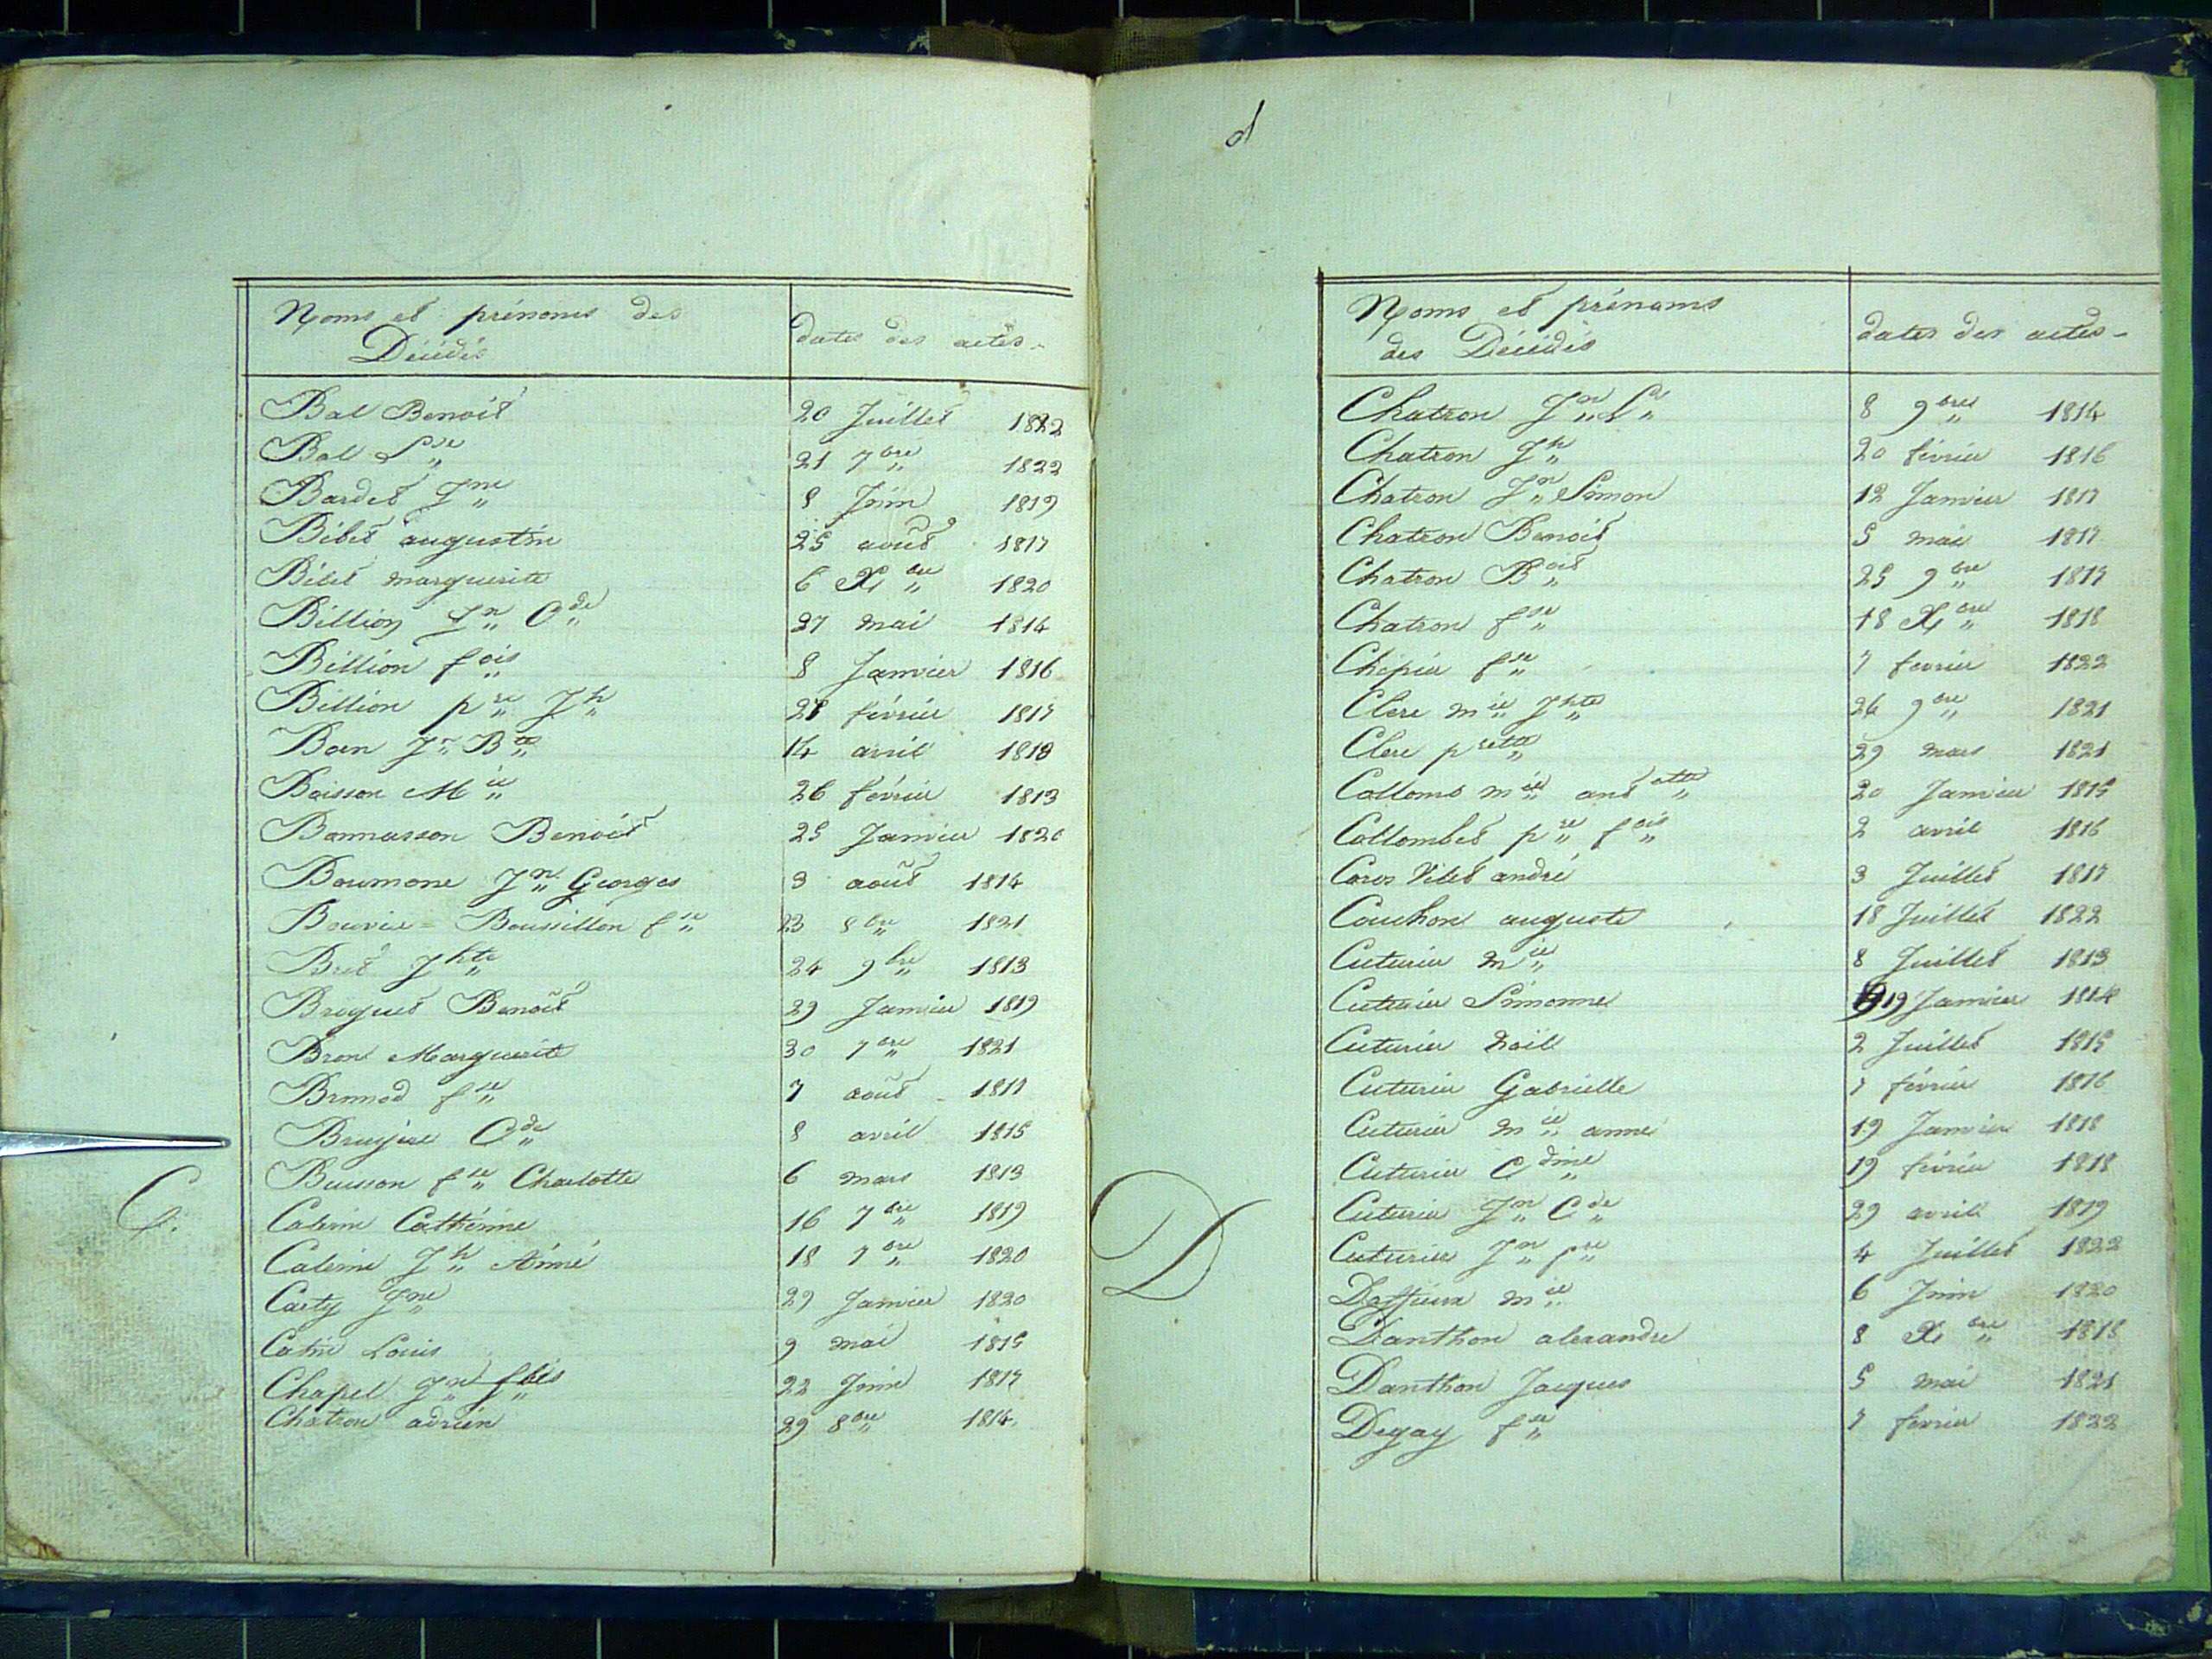 Noms et prénoms des
Décédés
dates des actes -
Bal Benoit 20 Juillet 1822
Bal 21 7bre 1822
Bardet Jne 8 Juin 1819
Bibet augustin 25 août 1817
Bibet marguerite 6 Xbre 1820
Billion Jn Cde 27 mai 1814
Billion fois 8 Janvier 1816
Billion pre Jh février 1817
Boen Jn Bte 14 avril 1818
Boisson Mie 26 février 1813
Bonnasson Benoit 25 Janvier 1820
Boumone Jn Georges 3 août 1814
Bouvier = Boussillon fse 23 8bre 1821
Bret Jhte 24 9bre 1813
Broquet Benoit 29 Janvier 1819
Bron Marguerite 30 7bre 1821
fse 7 août 1817
Bruyère Cde 8 avril 1815
Buisson fse Charlotte 6 mars 1813
C.
Caterin Cathérine 16 7bre 1819
Caterin Jh Aimé 18 7bre 1820
Carty Jne 29 Janvier 1820
Catin Louis 9 mai 1815
Chapel Jn fois 22 Juin 1817
Chatron adrien 29 8bre 1814
d
Noms et prénoms
des Décédés
dates des actes -
Chatron Jn Ls 8 9bre 1814
Chatron Jh 20 février 1816
Chatron Jn Simon 12 Janvier 1817
Chatron Benoit 5 mai 1817
Chatron Boit 25 9bre 1817
Chatron fse 18 Xbre 1818
Chepier fse 7 fevrier 1822
Clere mie Jhte 26 9bre 1821
Clere prette 29 mars 1821
Collomb mie antette 20 Janvier 1815
Collombet pre fois 2 avril 1816
Coros Vitet andré 3 Juillet 1817
Couchon auguste 18 Juillet 1822
Cuturier mie 8 Juillet 1813
Cuturier Simonne 19 Janvier 1814
Cuturier Noëll 2 Juillet 1815
Cuturier Gabrielle 7 février 1816
Cuturier mie anne 19 Janvier 1818
Cuturier Cdine 19 février 1818
Cuturier Jn Cde 29 avril 1819
Cuturier Jn pre 4 Juillet 1822
D
mie 6 Juin 1820
Danthon alexandre 8 Xbre 1818
Danthon Jacques 5 mai 1821
Degay fse 7 fevrier 1822